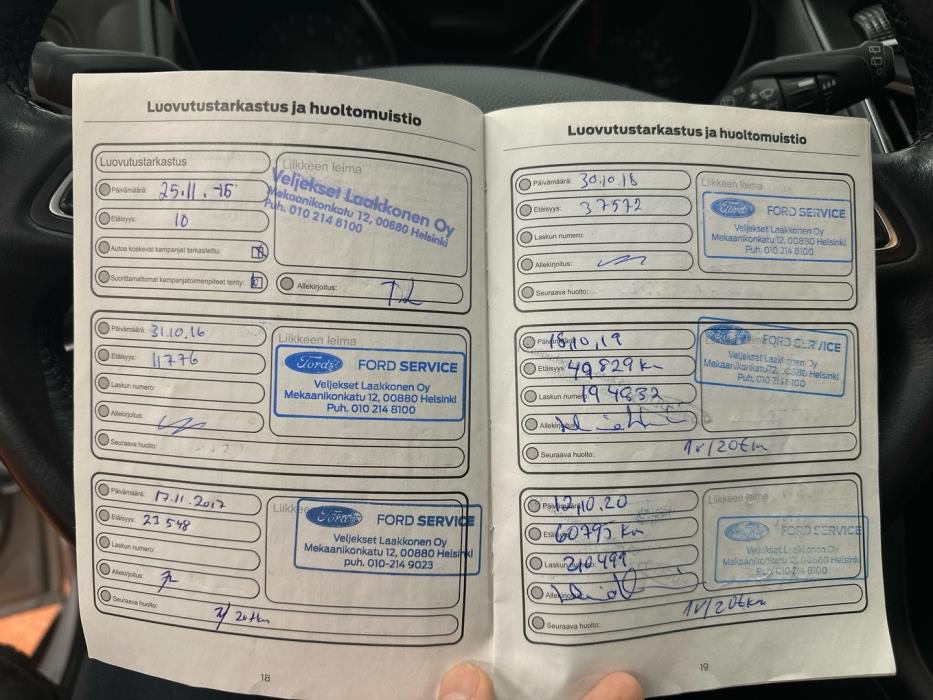 Luovutustarkastus ja huoltomuistio
Luovutustarkastus
Päivämäärä: 25.11.-15
Etäisyys: 10
Autoa koskevat kampanjat tarkastettu:
Suorittamattomat kampanjatoimenpiteet tehty:
Liikkeen leima
Veljekset Laakkonen Oy
Mekaanikonkatu 12, 00880 Helsinki
Puh. 010 214 8100
Allekirjoitus:
Päivämäärä: 31.10.16
Etäisyys: 11776
Laskun numero:
Allekirjoitus:
Seuraava huolto:
Liikkeen leima
Ford FORD SERVICE
Veljekset Laakkonen Oy
Mekaanikonkatu 12, 00880 Helsinki
Puh. 010 214 8100
Päivämäärä: 17.11.2017
Etäisyys: 23548
Laskun numero:
Allekirjoitus:
Seuraava huolto: 20tkm
Ford FORD SERVICE
Veljekset Laakkonen Oy
Mekaanikonkatu 12, 00880 Helsinki
puh. 010-214 9023
18
Luovutustarkastus ja huoltomuistio
Päivämäärä: 30.10.18
Etäisyys: 37572
Laskun numero:
Allekirjoitus:
Seuraava huolto:
Liikkeen leima
Ford FORD SERVICE
Veljekset Laakkonen Oy
Mekaanikonkatu 12, 00880 Helsinki
Puh. 010 214 8100
Päivämäärä: 18.10.19
Etäisyys: 49829 km
Laskun numero: 194832
Allekirjoitus:
Seuraava huolto: 1v/20tkm
Ford FORD SERVICE
Veljekset Laakkonen Oy
Mekaanikonkatu 12, 00880 Helsinki
Puh. 010 214 8100
Päivämäärä: 12.10.20
Etäisyys: 60795 km
Laskun numero: 210499
Allekirjoitus:
Seuraava huolto: 1v/20tkm
Liikkeen leima
Ford FORD SERVICE
Veljekset Laakkonen Oy
Mekaanikonkatu 12, 00880 Helsinki
Puh. 010 214 8100
19